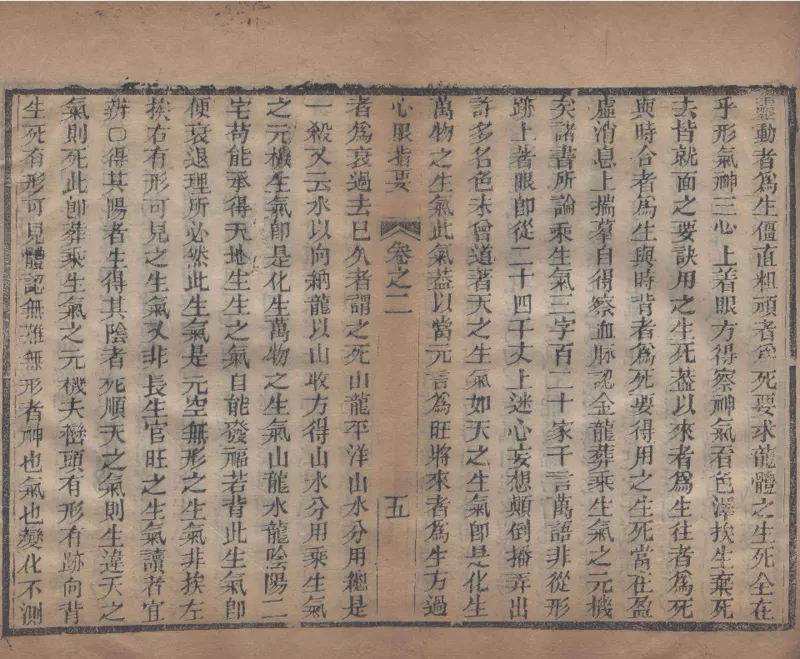 靈動者為生僵直粗頑者為死要求龍體之生死全在
乎形氣神三心上着眼方得察神氣看色澤挨生棄死
去背就面之要訣用之生死蓋以來者為生往者為死
與時合者為生與時背者為死要得用之生死當在盈
虛消息上揣摹自得察血脉認金龍葬乘生氣之元機
矣諸書所論乘生氣三字百二十家千言萬語非從形
跡上著眼卽從二十四干丈上迷心妄想顛倒播弄出
許多名色未曾道著天之生氣如天之生氣卽是化生
萬物之生氣此氣蓋以當元言為旺將來者為生方過
心眼指要 卷之二 五
者為衰過去巳久者謂之死山龍平洋山水分用總是
一殺又云水以向納龍以山收方得山水分用乘生氣
之元機生氣卽是化生萬物之生氣山龍水龍陰陽二
宅苟能承得天地生生之氣自能發福若背此生氣卽
便衰退理所必然此生氣是元空無形之生氣非挨左
挨右有形可見之生氣又非長生官旺之生氣讀者宜
辨〇得其陽者生得其陰者死順天之氣則生違天之
氣則死此卽葬乘生氣之元機夫巒頭有形有跡向背
生死有形可見體認無難無形者神也氣也變化不測